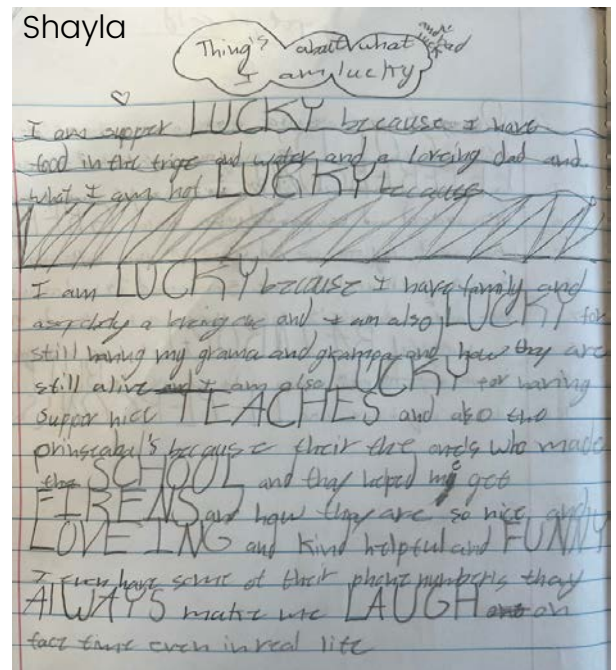 Shayla
Thing's about what and bad luck
I am lucky
I am supper LUCKY because I have
food in the frige and water and a loveing dad and
what I am not LUCKY because
I am LUCKY because I have family and
a loveing one and I am also LUCKY for
still having my grama and grampa and how they are
still alive and I am also LUCKY for having
supper nice TEACHES and also the
prinscabal's because their the ones who made
the SCHOOL and thay helped me get
FIRENS and how thay are so nice and
LOVEING and kind helpful and FUNNY
I even have some of their phone numbers thay
AlWAYS make me LAUGH on
face time even in real life